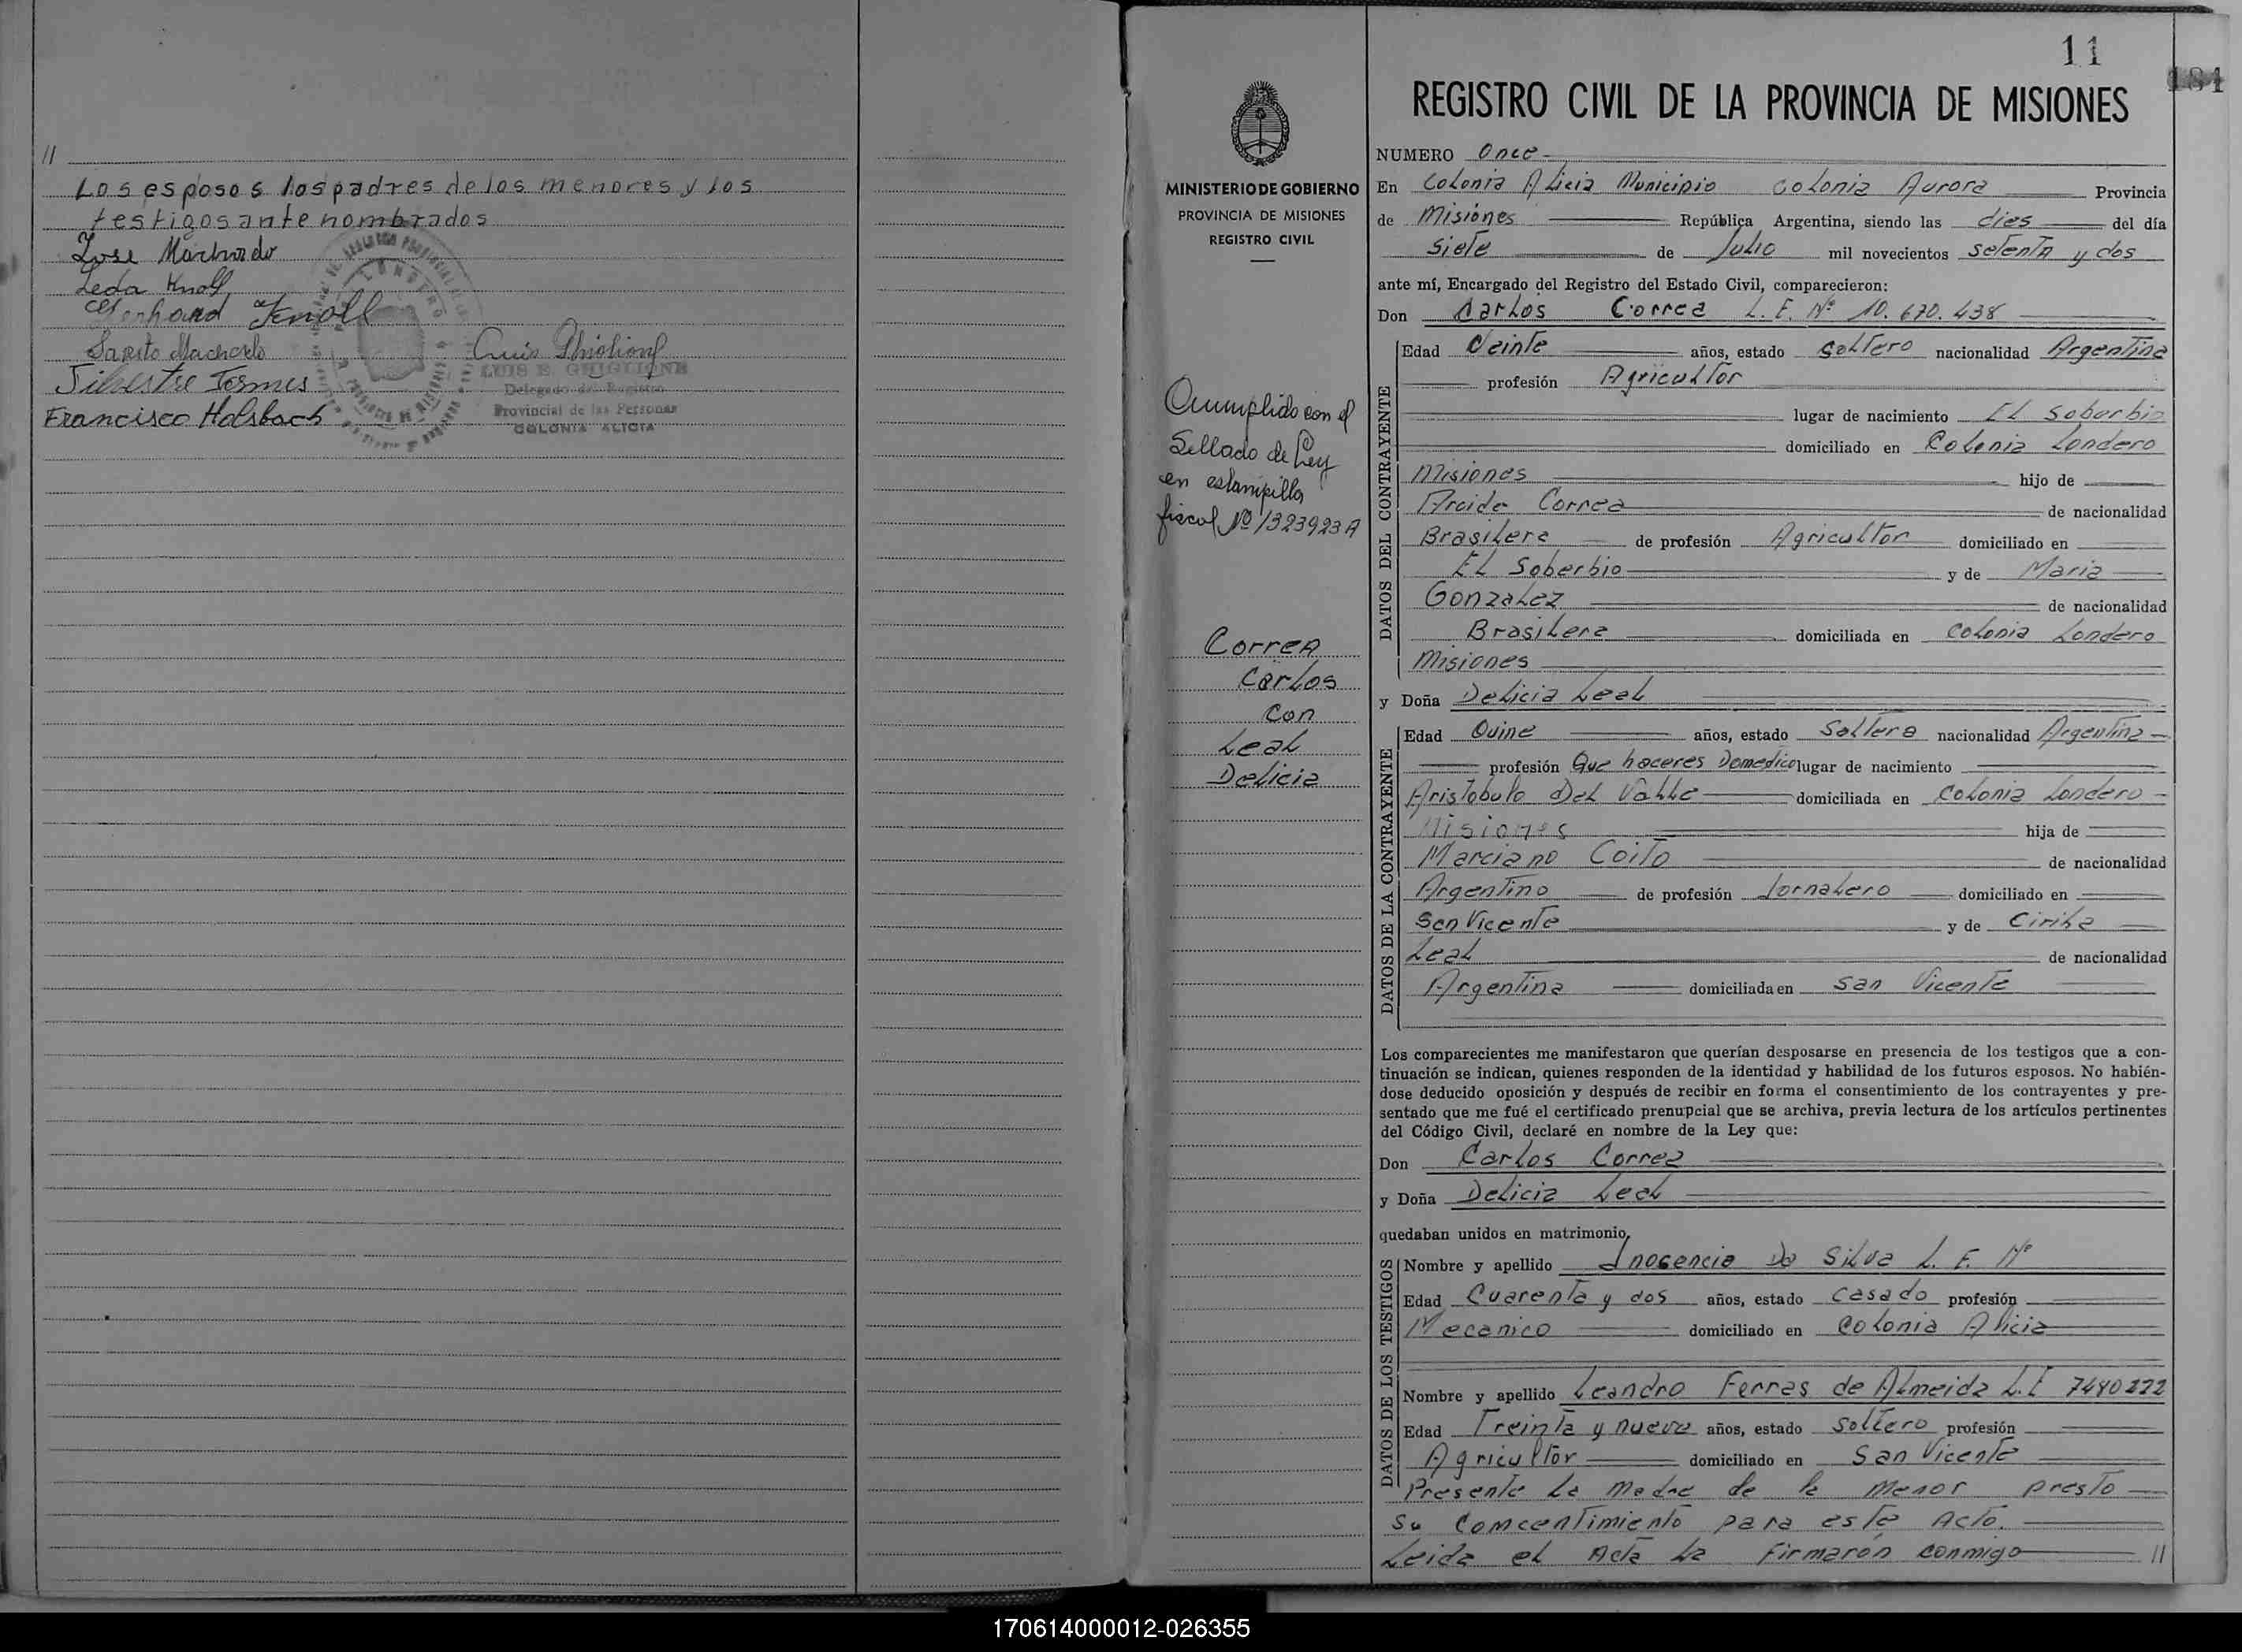 //
Los esposos los padres de los menores y los
testigos ante nombrados
Jose Machado
Leda Knoll
Gerhard Knoll
Sarito Machado
Silvestre Tesmes
Francisco Holsbach
LUIS E. GHIGLIONE
Delegado del Registro
Provincial de las Personas
COLONIA ALICIA
MINISTERIO DE GOBIERNO
PROVINCIA DE MISIONES
REGISTRO CIVIL
Cuumplido con el
Sellado de Ley
en estampilla
fiscal Nº 1323923A
Correa
Carlos
Con
Leal
Delicia
11
184
REGISTRO CIVIL DE LA PROVINCIA DE MISIONES
NUMERO Once
En Colonia Alicia Municipio Colonia Aurora Provincia
de Misiones República Argentina, siendo las dies del día
Siete de Julio mil novecientos setenta y dos
ante mí, Encargado del Registro del Estado Civil, comparecieron:
Don Carlos Correa L. E. Nº 10.670.438
DATOS DEL CONTRAYENTE
Edad Veinte años, estado Soltero nacionalidad Argentina
profesión Agricultor
lugar de nacimiento El Soberbio
domiciliado en Colonia Londero
Misiones hijo de
Aroide Correa de nacionalidad
Brasilera de profesión Agricultor domiciliado en
El Soberbio y de Maria
Gonzalez de nacionalidad
Brasilera domiciliada en Colonia Londero
Misiones
y Doña Delicia Leal
DATOS DE LA CONTRAYENTE
Edad Quine años, estado Soltera nacionalidad Argentina
profesión Que haceres Domedico lugar de nacimiento
Aristobulo Del Valle domiciliada en Colonia Londero
Misiones hija de
Marciano Coito de nacionalidad
Argentino de profesión Jornalero domiciliado en
San Vicente y de Cirila
Leal de nacionalidad
Argentina domiciliada en San Vicente
Los comparecientes me manifestaron que querían desposarse en presencia de los testigos que a con-
tinuación se indican, quienes responden de la identidad y habilidad de los futuros esposos. No habién-
dose deducido oposición y después de recibir en forma el consentimiento de los contrayentes y pre-
sentado que me fué el certificado prenupcial que se archiva, previa lectura de los artículos pertinentes
del Código Civil, declaré en nombre de la Ley que:
Don Carlos Correa
y Doña Delicia Leal
quedaban unidos en matrimonio.
DATOS DE LOS TESTIGOS
Nombre y apellido Inosencio Da Silva L. E. Nº
Edad Cuarenta y dos años, estado Casado profesión
Mecanico domiciliado en Colonia Alicia
Nombre y apellido Leandro Ferras de Almeida L.E 7480222
Edad Treinta y nueve años, estado Soltero profesión
Agricultor domiciliado en San Vicente
Presente La Madre de la Menor presto
su Comcentimiento para este Acto.
Leida el Acta La Firmaron conmigo //
170614000012-026355